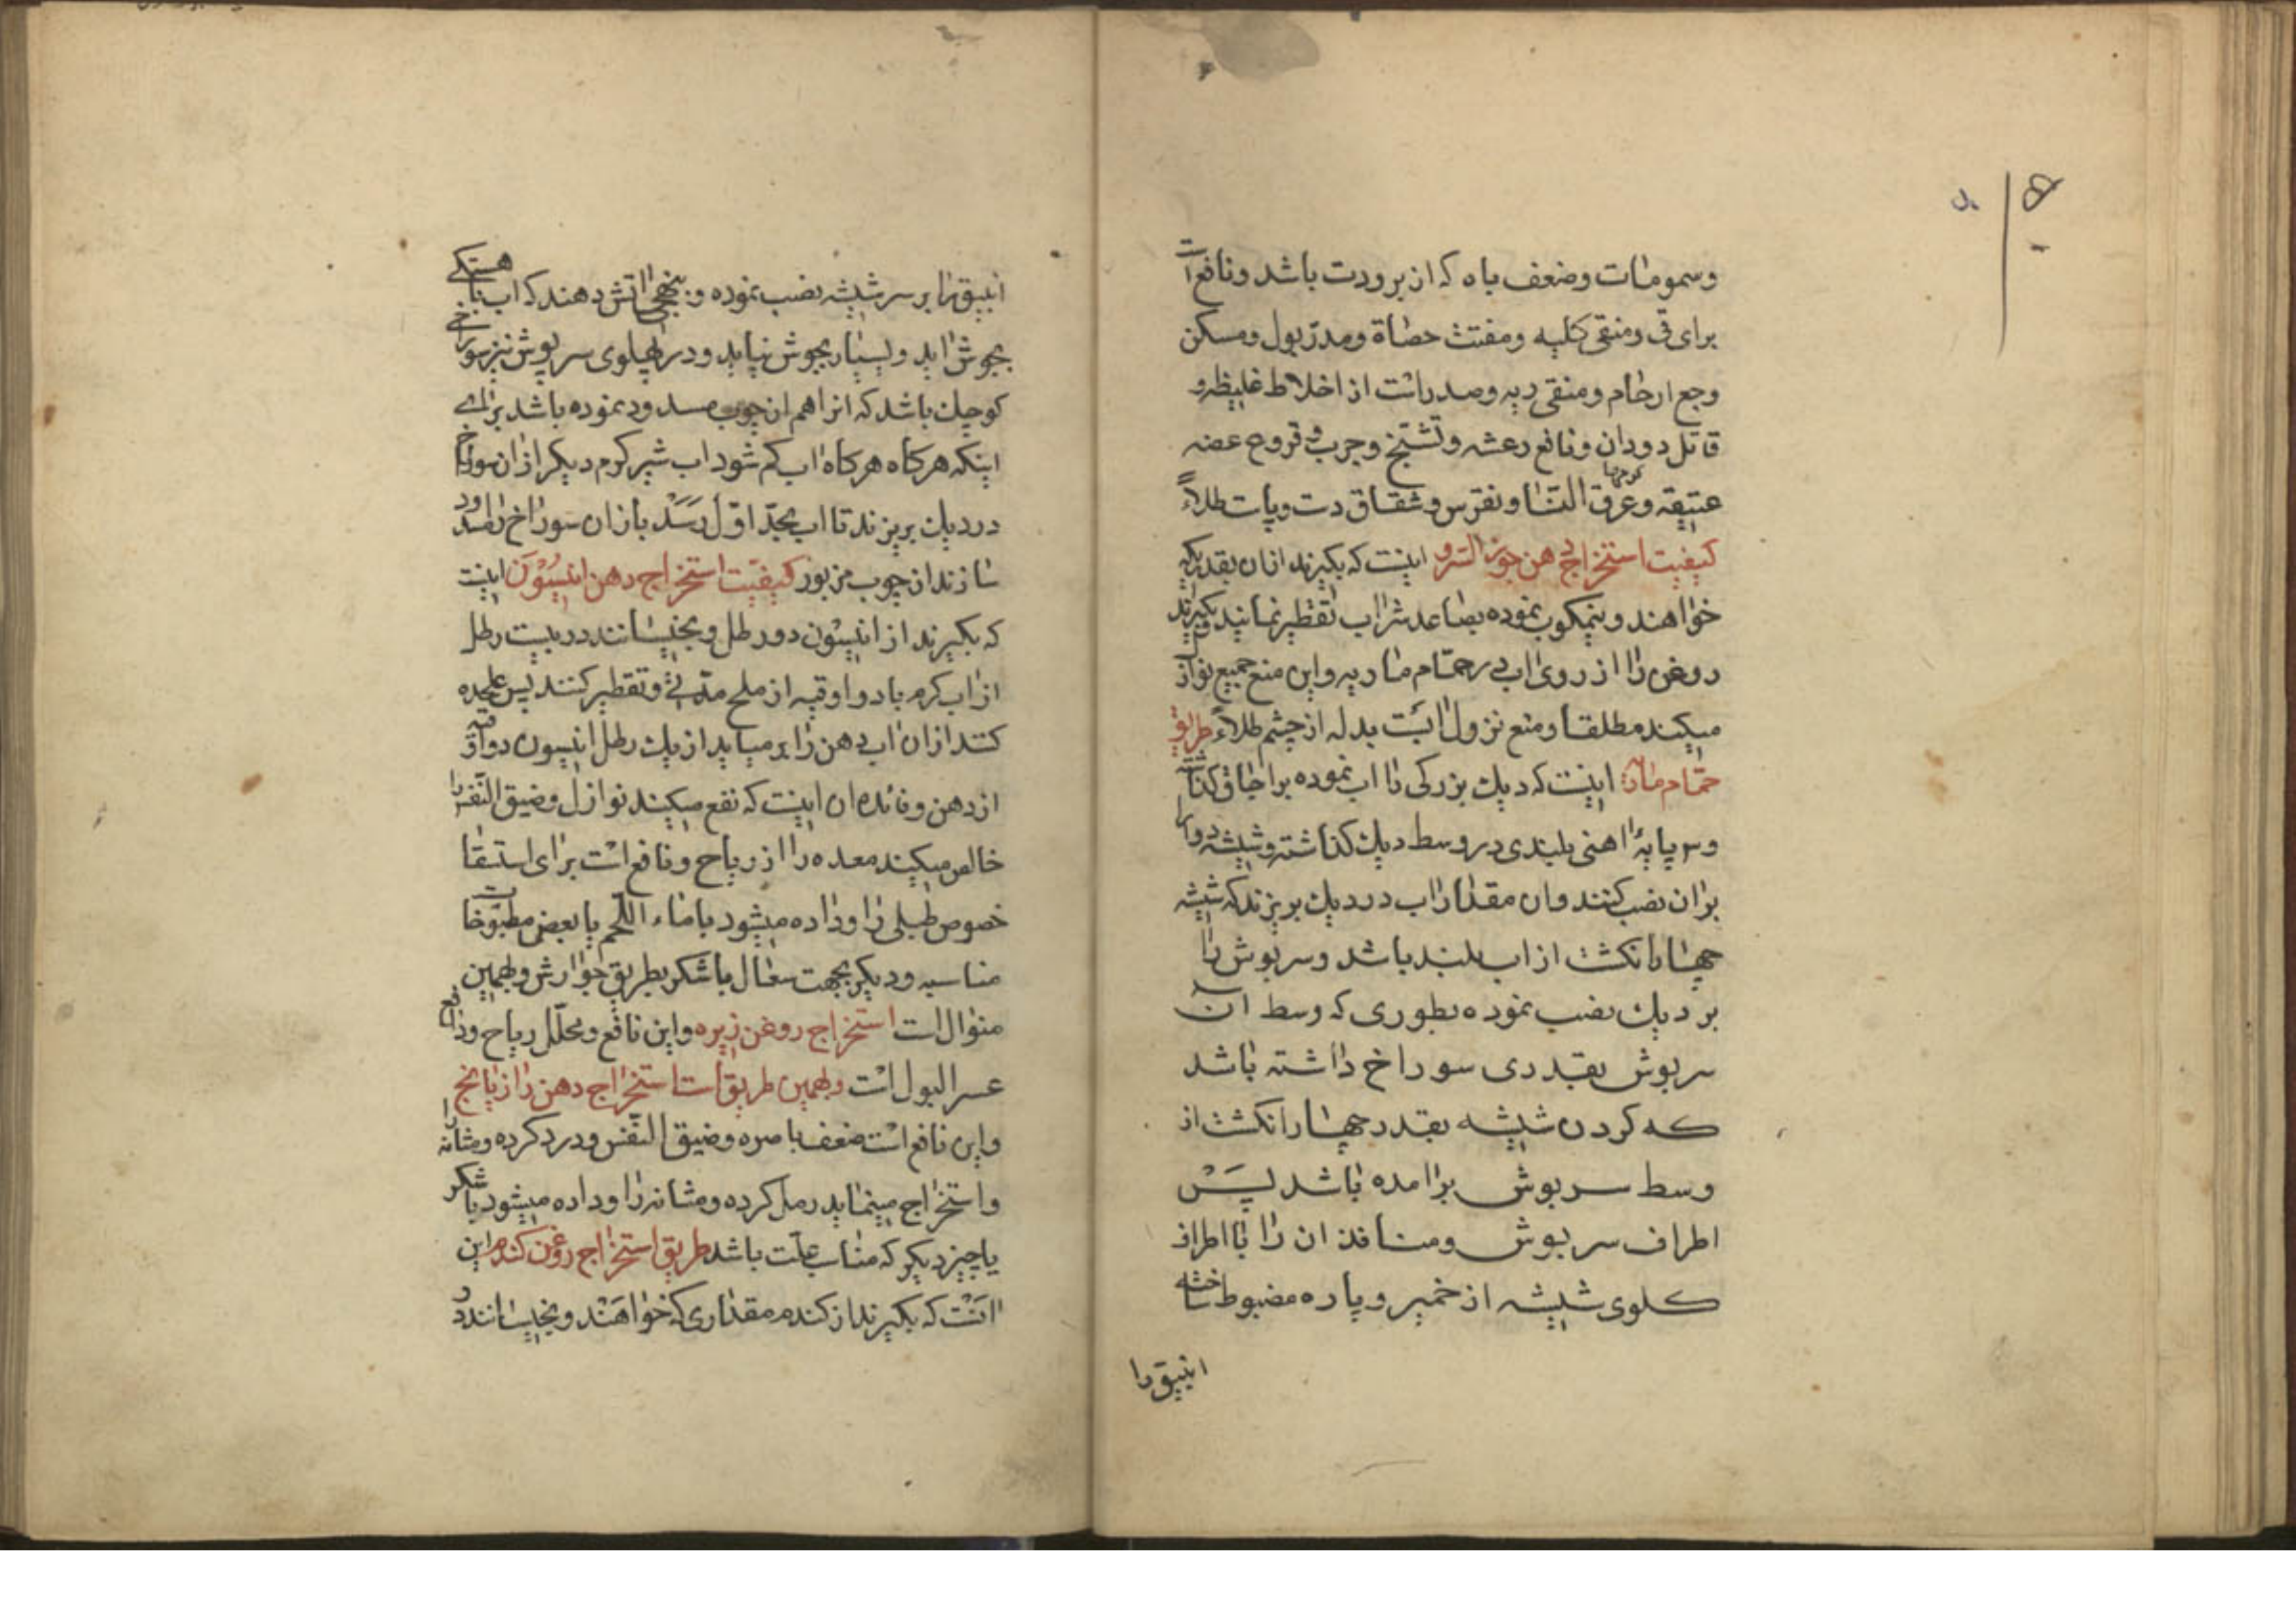 وسمومات وضعف باه که از برودت باشد ونافع است
برای قی ومنقی کلیه ومفتت حصاة ومدر بول ومسکن
وجع ارحام ومنقی ریه وصدر است از اخلاط غلیظه و
قاتل دودان ونافع رعشه وتشنج وجرب و قروح عضه
عتیقه وعرق النسا ونقرس وشقاق دست وپاست طلاءً
کیفیت استخراج دهن جوز السرو اینست که بکیرند از ان بقدریکه
خواهند ونیمکوب نموده بصاعد شراب تقطیر نمایند بکیرند
روغن را از روی اب در حمام ماریه واین منع جمیع نوازل
میکند مطلقا ومنع نزول ابست بدله از چشم طلاءً طریق
حمام ماریه اینست که دیك بزرکی را اب نموده براجاق کذاشته
وسه پایهٔ اهنی بلندی در وسط دیك کذاشته وشیشه دوا را
بران نصب کنند وان مقدار اب در دیك بریزند که شیشه
چهار انکشت از اب بلند باشد وسرپوش را
بر دیك نصب نموده بطوری که وسط ان
سرپوش بقدری سوراخ داشته باشد
که کردن شیشه بقدر چهار انکشت از
وسط سرپوش برامده باشد پس
اطراف سرپوش ومنافذ ان را با اطراف
کلوی شیشه از خمیر وپاره مضبوط ساخته
انبیق را
انبیق را بر سر شیشه نصب نموده وبنهجی اتش دهند که اب باهستکی
بجوش اید وبسیار بجوش نیاید ودر پهلوی سرپوش نیز سوراخی
کوچك باشد که انرا هم از چوب مسدود نموده باشد برای
اینکه هرکاه هرکاه اب کم شود اب شیر کرم دیکر از ان سوراخ
در دیك بریزند تا اب بحد اول رسد باز ان سوراخ را مسدود
سازند از چوب مزبور کیفیت استخراج دهن انیسون اینست
که بکیرند از انیسون دو رطل وبخیسانند در بیست رطل
از اب کرم با دو اوقیه از ملح مدتی وتقطیر کنند پس علیحده
کنند از ان اب دهن را بر میاید از یك رطل انیسون دو اوقیه
از دهن وفائده ان اینست که نفع میکند نوازل وضیق النفس را
خالص میکند معده را از ریاح ونافع است برای استسقا
خصوص طبلی را وداده میشود با ماء اللحم یا بعض مطبوخات
مناسبه ودیکر بجهت سعال باشکر بطریق جوارش وبهمین
منوال است استخراج روغن زیره واین نافع ومحلل ریاح ودافع
عسر البول است وبهمین طریق است استخراج دهن رازیانج
واین نافع است ضعف باصره وضیق النفس ودرد کرده ومثانه را
واستخراج مینماید رمل کرده ومثانه را وداده میشود باشکر
یا چیز دیکر که مناسب علت باشد طریق استخراج روغن کندم این
است که بکیرند از کندم مقداری که خواهند وبخیسانند در